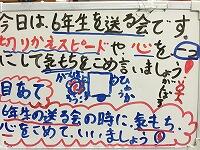 今日は、6年生を送る会です。
切りかえスピードや、心を
にして気もちをこめ言いましょう
目あて
6年生の送る会の時に、気もち、
心をこめて、いいましょう